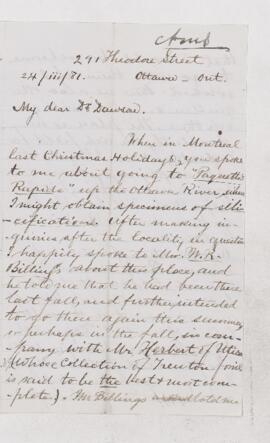 Ansd
291 Theodore Street
24/iii/81. Ottawa - Ont.
My dear Dr Dawson.
When in Montreal
last Christmas Holidays, you spoke
to me about going to "Paquette's
Rapids" up the Ottawa River, where
I might obtain specimens of sili-
-cification. After making in-
quiries after the locality in question
I happily spoke to Mr. W. R.
Billings about this place, and
he told me that he had been there
last fall, and further, intended
to go there again this summer
or perhaps in the fall, in com-
pany with Mr Herbert of Utica
(whose Collection of Trenton
is said to be the best & most com-
plete). Mr Billings told me